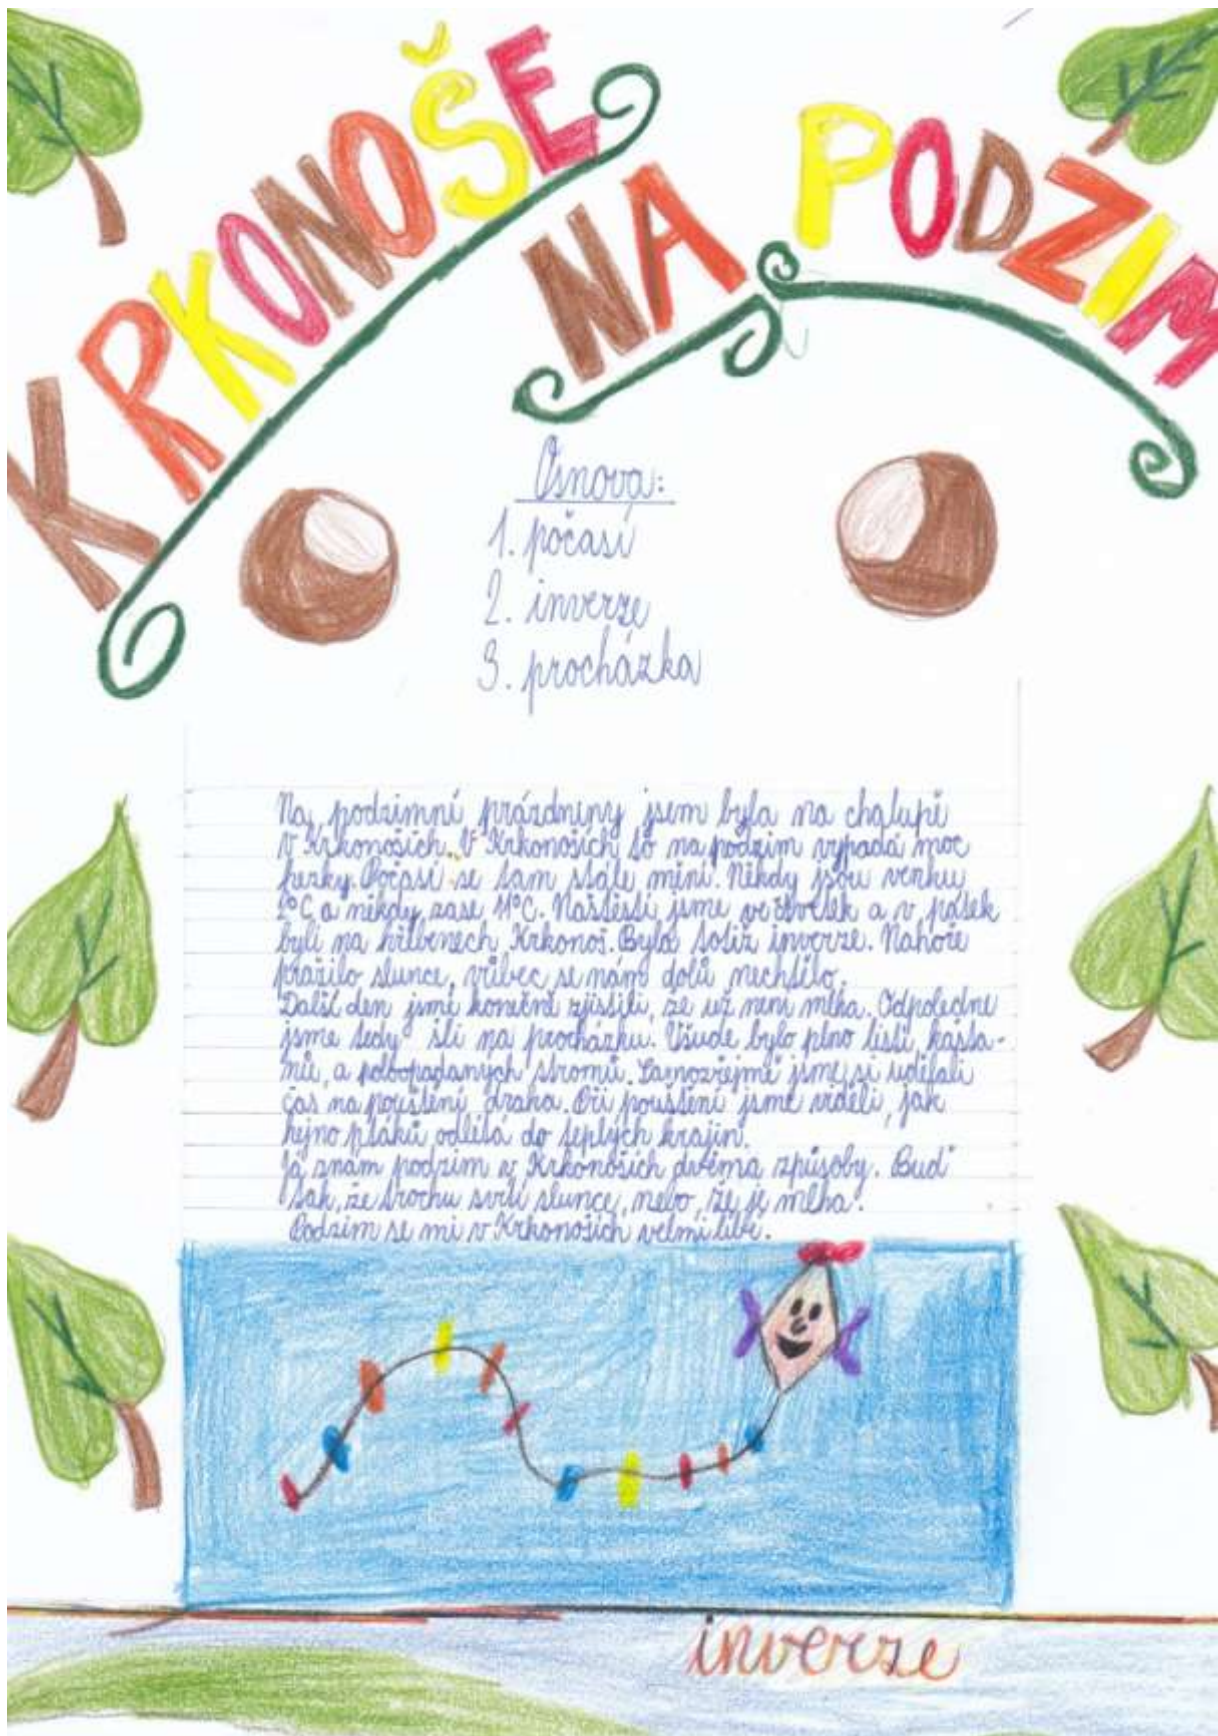 KRKONOŠE
NA PODZIM
Osnova:
1. počasí
2. inverze
3. procházka
Na podzimní prázdniny jsem byla na chalupě
v Krkonoších. V Krkonoších to na podzim vypadá moc
hezky. Počasí se tam stále mění. Někdy jsou venku
2°C a někdy zase 11°C. Naštěstí jsme ve čtvrtek a v pátek
byli na hřebenech Krkonoš. Byla totiž inverze. Nahoře
pražilo slunce, vůbec se nám dolů nechtělo.
Další den jsme konečně zjistili, že už není mlha. Odpoledne
jsme tedy šli na procházku. Všude bylo plno listí, kašta-
nů, a poloopadaných stromů. Samozřejmě jsme si udělali
čas na pouštění draka. Při pouštění jsme viděli, jak
hejno ptáků odlétá do teplých krajin.
Já znám podzim v Krkonoších dvěma způsoby. Buď
tak, že trochu svítí slunce, nebo, že je mlha.
Podzim se mi v Krkonoších velmi líbí.
inverze